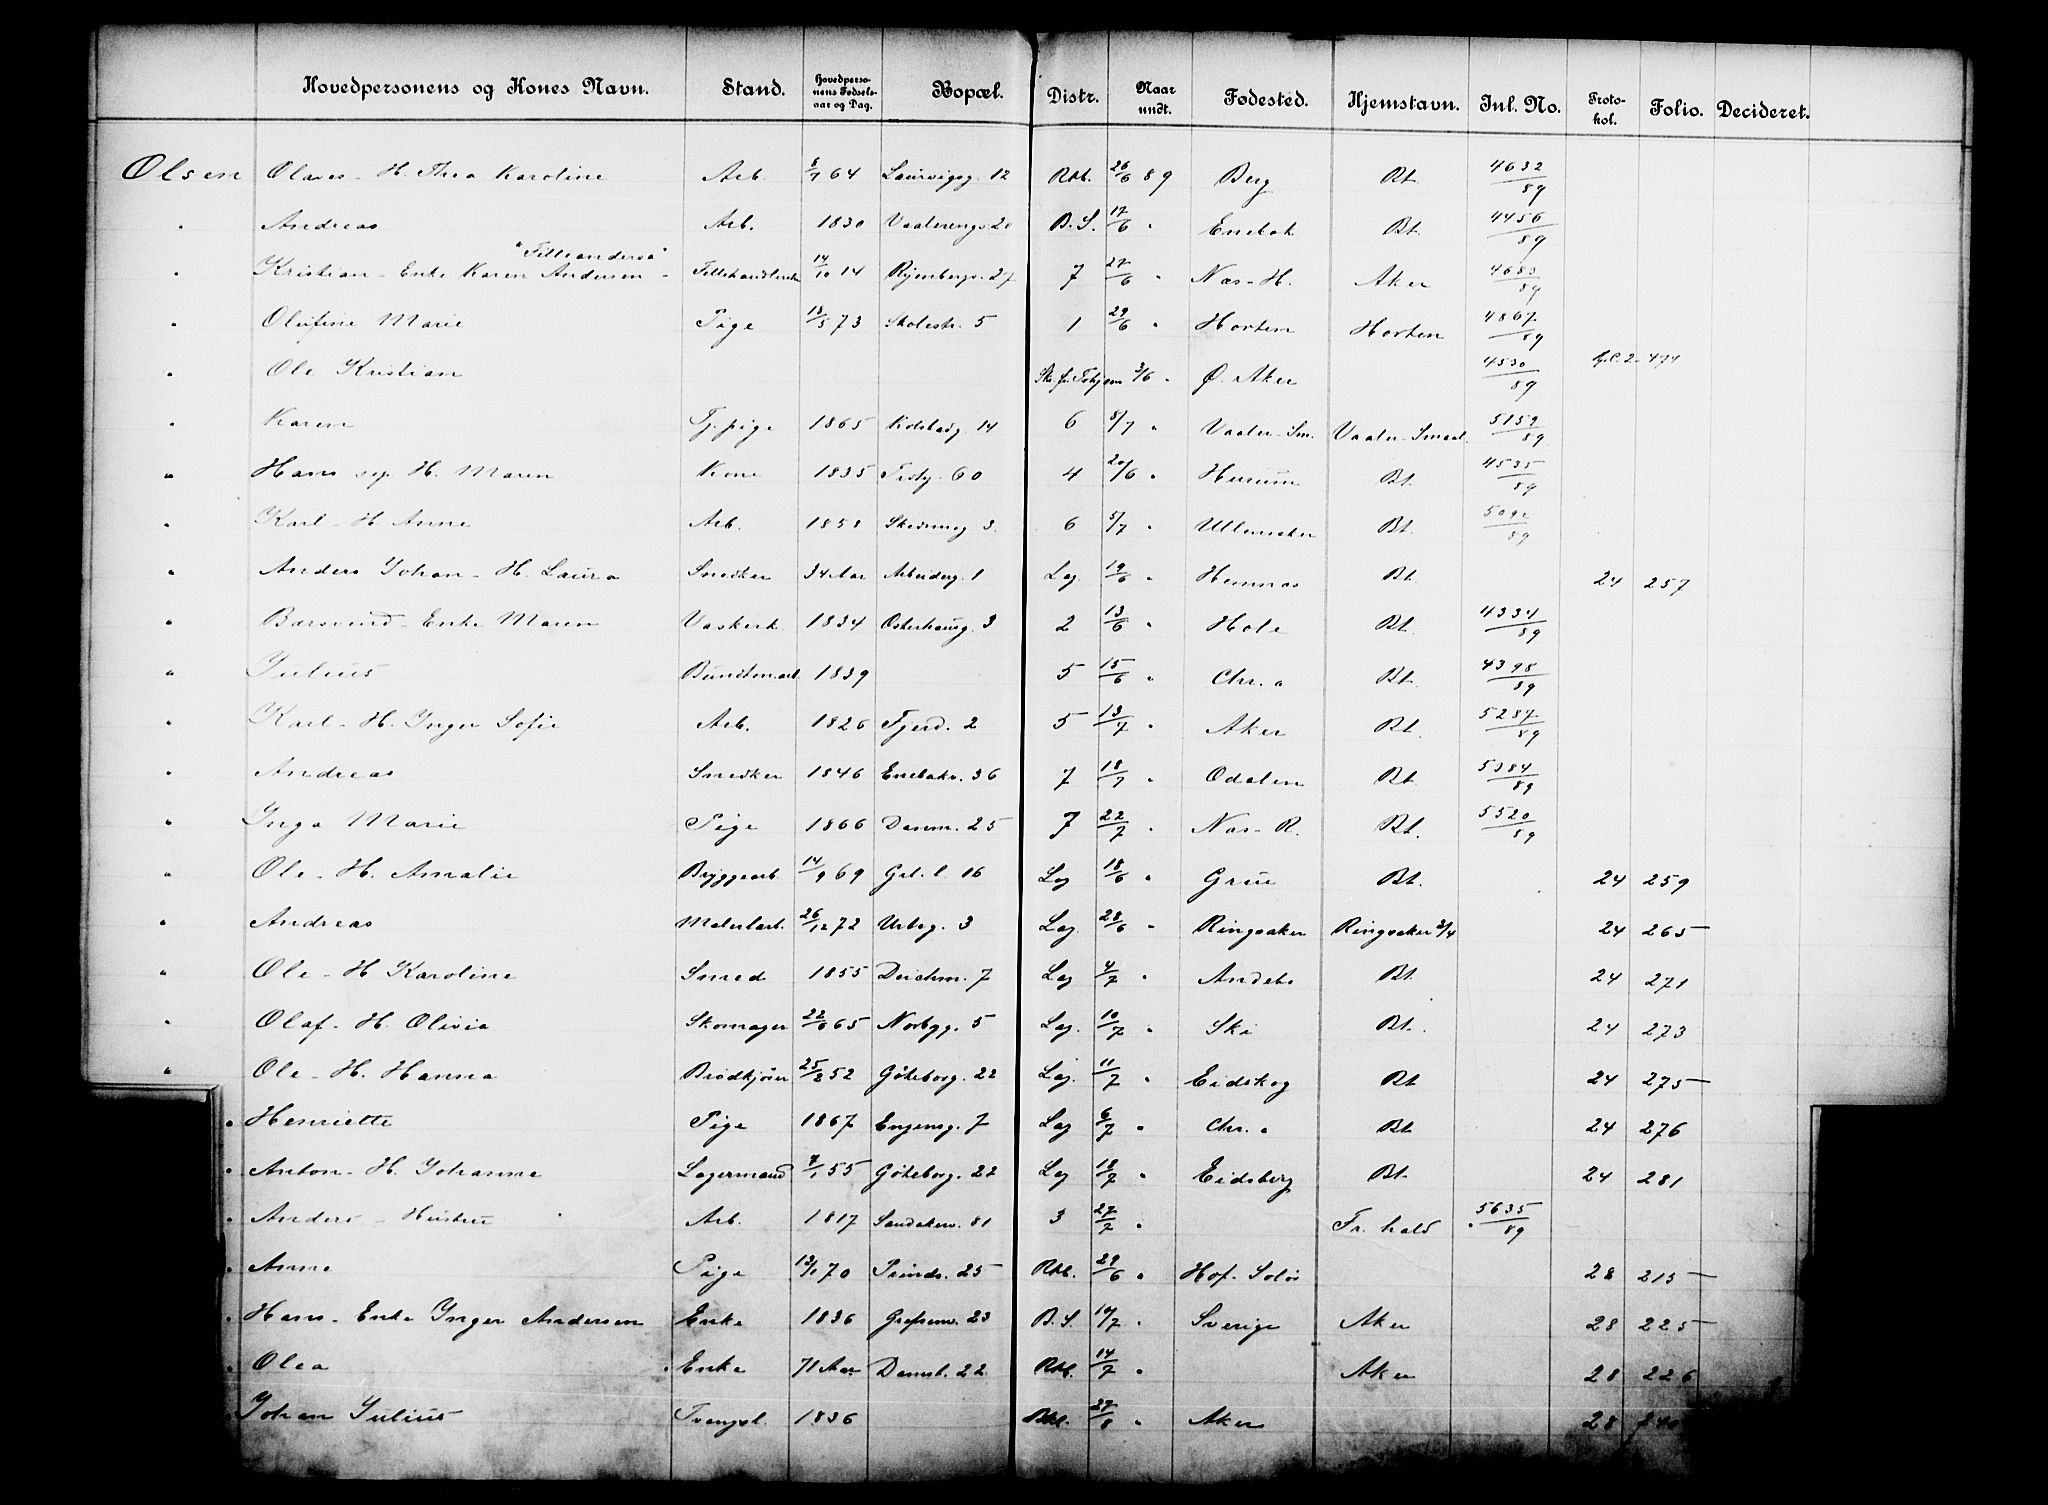 Hovedpersonens og Kones Navn. Stand. Hovedpersonens Fødselsaar og Dag. Bopæl. Distr. Naar undt. Fødested. Hjemstavn. Inl. No. Protokol. Folio. Decideret.
Olsen Olaves - H. Thea Karoline Arb. 8/7 64 Laurvigsg. 12 Rbl. 26/6 89 Berg Bt. 4632/89
" Andreas Arb. 1830 Vaalerengs 20 B.S. 17/6 " Enebak Bt. 4456/89
"Filleanders"
" Kristian - Enke Karen Andersen - Fillehandlerske 14/10 14 Ryenbergv. 27 7 27/6 " Næs - H. Aker 4683/89
" Olufine Marie Pige 13/5 73 Skolestr. 5 1 29/6 " Horten Horten 4867/89
" Ole Kristian 3/6 " Ø. Aker 4530/89 2 474
" Karen Tj.pige 1865 Kolstadg. 14 6 8/7 " Vaaler - Sm. Vaaler - Smaal. 5159/89
" Hans sep. H. Maren Kone 1835 Toftg. 60 4 20/6 " Hurum Bt. 4535/89
" Karl - H. Anne Arb. 1858 Skedsmog 3. 6 5/7 " Ullensaker Bt. 5092/89
" Anders Johan - H. Laura Snedker 34 Aar Arbeiderg. 1 Log. 19/6 " Hemnæs Bt. 24 257
" Barsvend - Enke Maren Vaskerk 1834 Osterhausg. 3 2 13/6 " Hole Bt. 4334/89
" Julius Bundtm.arb 1839 5 15/6 " Chr.a Bt. 4398/89
" Karl - H. Inger Sofie Arb. 1826 Fjerd. 2 5 13/7 " Aker Bt. 5287/89
" Andreas Snedker 1846 Enebakv. 36 7 18/7 " Odalen Bt. 5384/89
" Inga Marie Pige 1866 Danm. 25 7 22/7 " Næs - R. Bt. 5520/89
" Ole - H. Amalie Bryggearb 14/9 69 Grl. l. 16 Log 18/6 " Grue Bt. 24 259
" Andreas Malerlærl. 26/12 72 Urteg. 3 Log. 28/6 " Ringsaker Ringsaker 3/4 24 265
" Ole - H Karoline Smed 1855 Deichm. 7 Log 4/7 " Andebo Bt. 24 271
" Olaf - H. Olivia Skomager 22/6 65 Norbyg. 5 Log. 10/7 " Ski Bt. 24 273
" Ole - H. Hanna Brødkjører 25/2 52 Gøteborg. 22 Log. 11/7 " Eidskog Bt 24 275
" Henriette Pige 1867 Engensg. 7 Log 6/7 " Chr.a Bt 24 276
" Anton - H. Johanne Lagermand 7/1 55 Gøteborg. 22 Log 18/7 " Eidsberg Bt. 24 281
" Anders - Hustru Arb. 1817 Sandakerv. 81 3 27/7 " Fr.hald 5635/89
" Anne Pige 13/1 70 Prinds. 25 Rbl. 29/6 " Hof - Solør 28 215
" Hans - Enke Inger Andersen Enke 1836 Grefsenv. 23 B.S. 10/7 " Sverige Aker 28 225
" Olea Enke 71 Aar Damst. 22 Rbl. 14/7 " Aker 28 226
" Johan Julius Tvangsl. 1836 Rbl. 27/8 " Aker 28 240